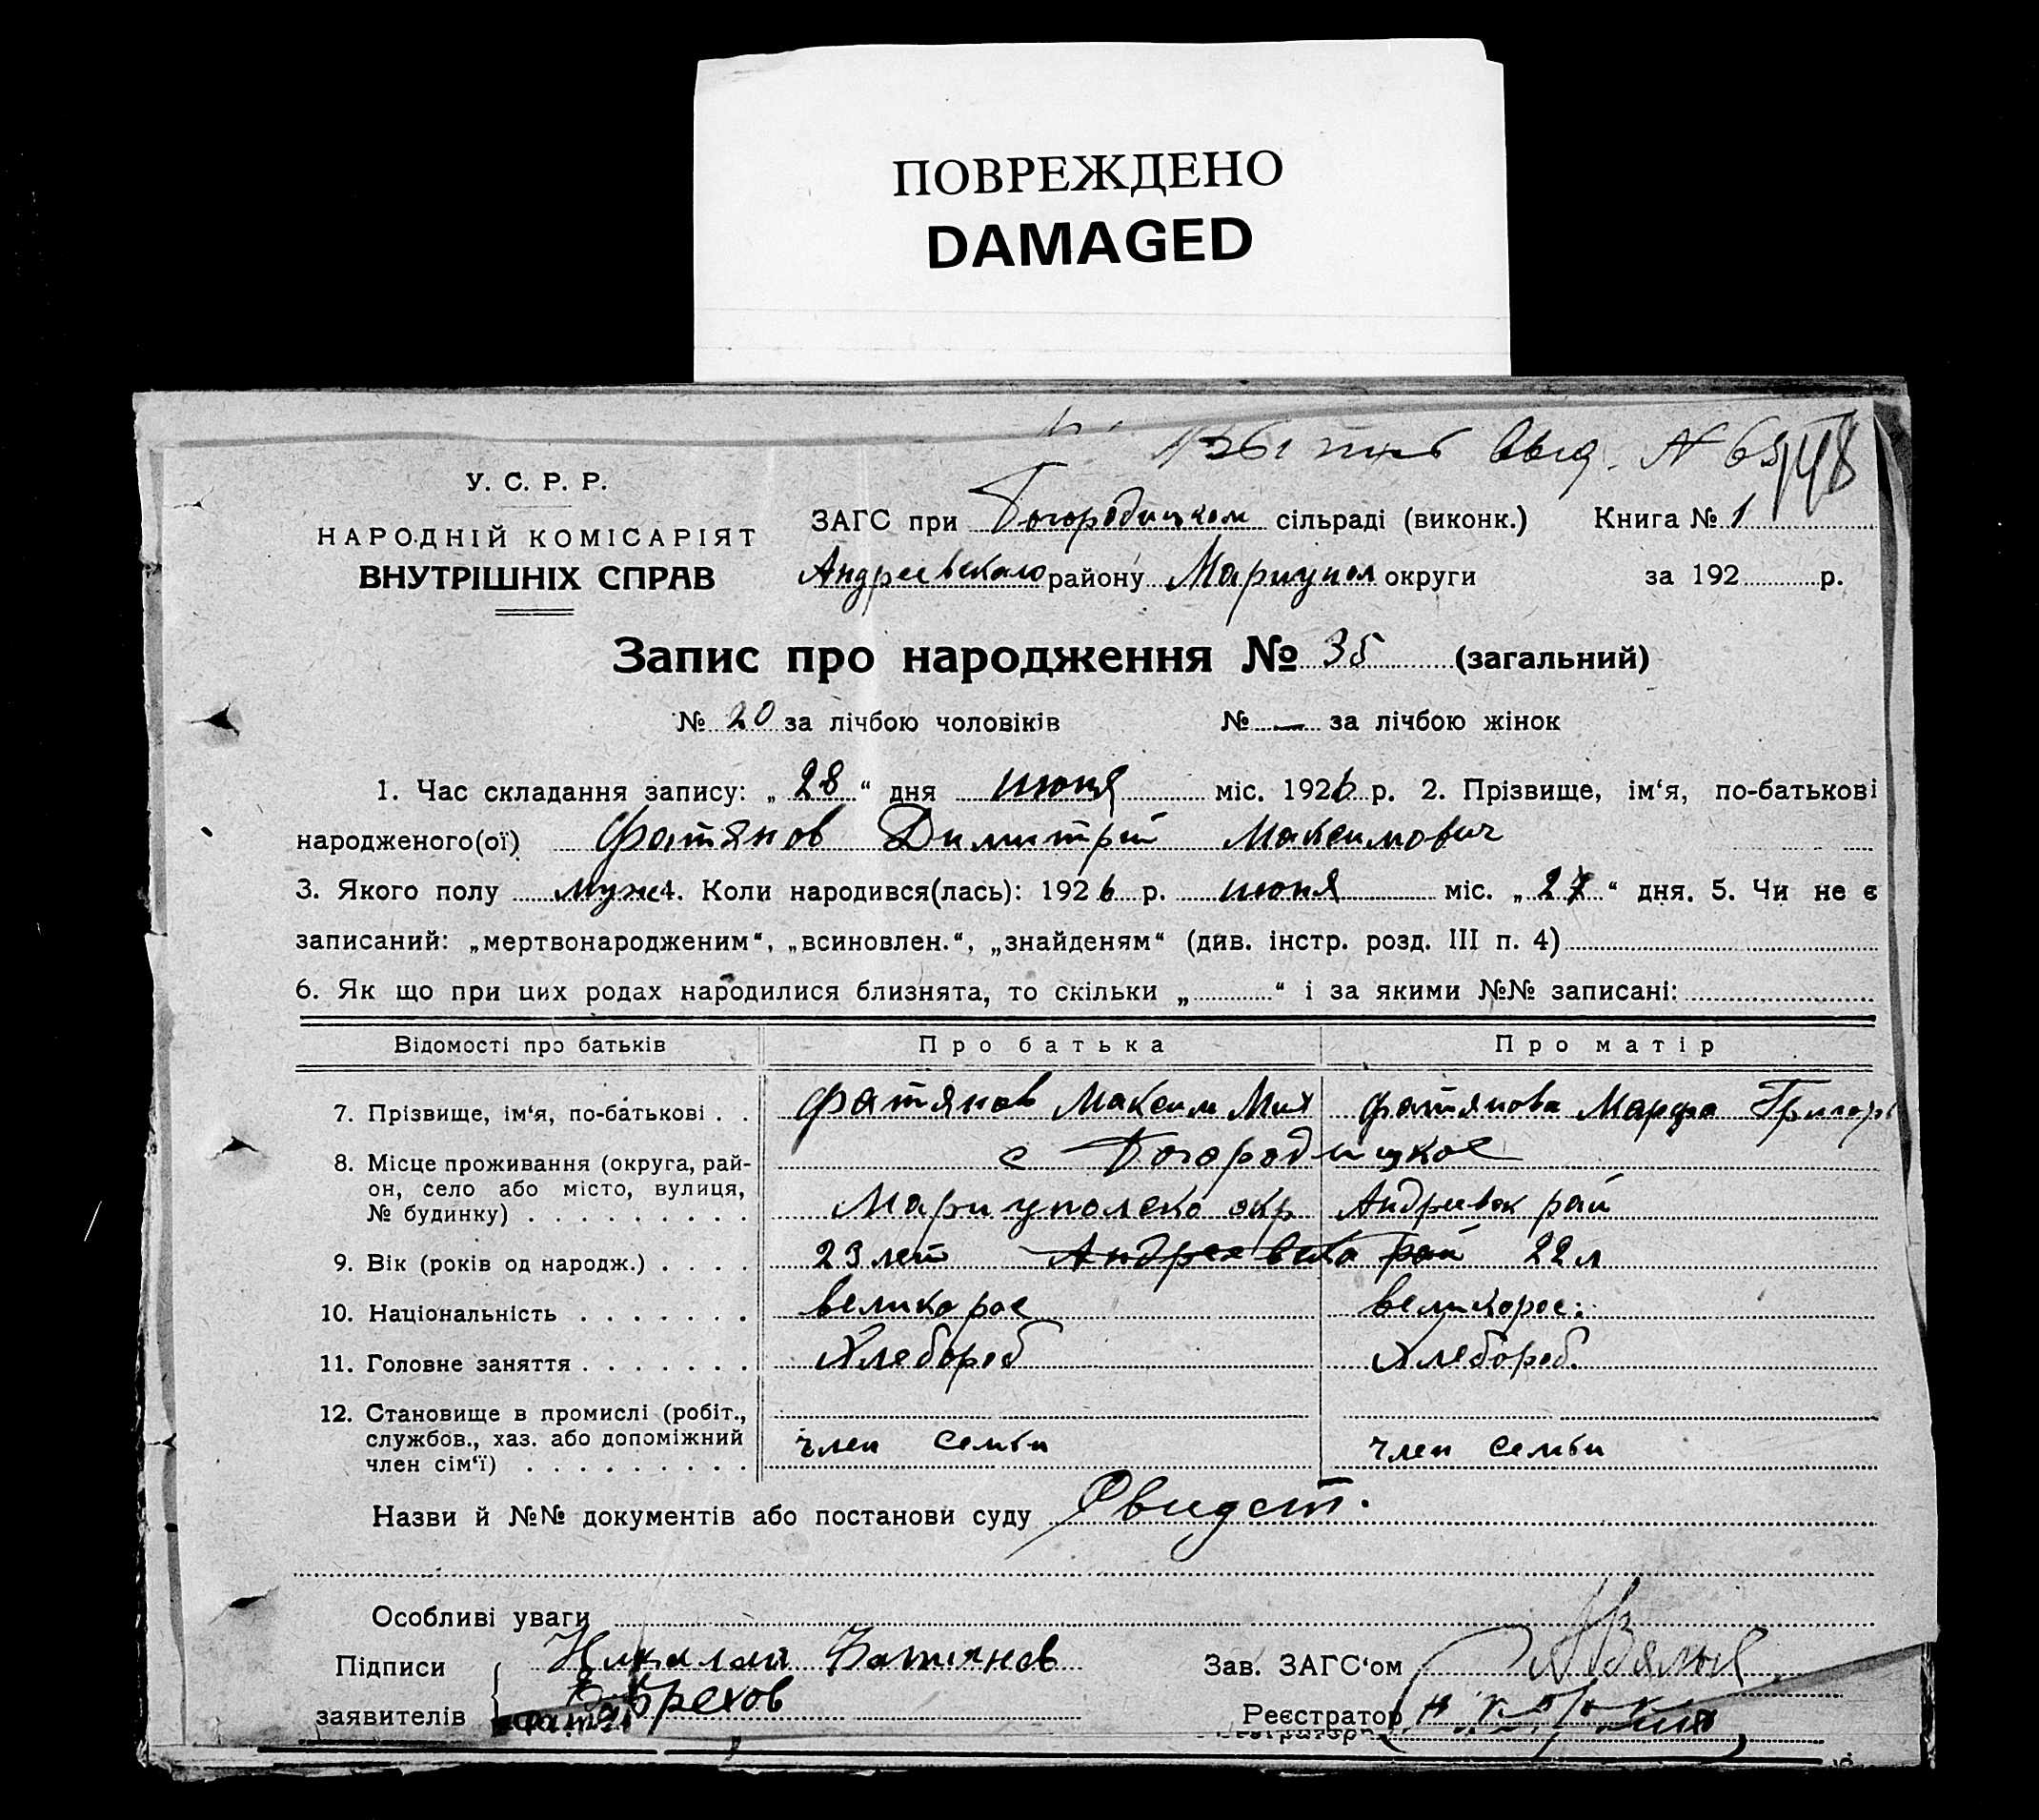 ПОВРЕЖДЕНО
DAMAGED
выд. №
У. С. Р. Р.
НАРОДНІЙ КОМІСАРІЯТ
ВНУТРІШНІХ СПРАВ
ЗАГС при Богородицком сільраді (виконк.) Книга № 1
Андреевского району Мариупол округи за 192 р.
Запис про народження № 35 (загальний)
№ 20 за лічбою чоловіків № — за лічбою жінок
1. Час складання запису: „28“ дня июня міс. 1926 р. 2. Прізвище, ім‘я, по-батькові
народженого(ої) Фатянов Димитрий Максимович
3. Якого полу муж 4. Коли народився(лась): 1926 р. июня міс. „27“ дня. 5. Чи не є
записаний: „мертвонародженим“, „всиновлен.“, „знайденям“ (див. інстр. розд. III п. 4)
6. Як що при цих родах народилися близнята, то скільки „ “ і за якими №№ записані:
Відомості про батьків Про батька Про матір
7. Прізвище, ім‘я, по-батькові . . Фатянов Максим Мих Фатянова Марфа Григорь
8. Місце проживання (округа, рай- с Богородицкое
он, село або місто, вулиця,
№ будинку) . . . . . . . . . Мариуполско окр Андреевск рай
9. Вік (років од народж.) . . . . 23 лет Андреевско рай 22 л
10. Національність . . . . . . . великорос великорос:
11. Головне заняття . . . . . . . Хлебороб Хлебороб.
12. Становище в промислі (робіт.,
службов., хаз. або допоміжний член семьи член семьи
член сім‘ї) . . . . . . . . .
Назви й №№ документів або постанови суду Свидет.
Особливі уваги
Підписи Николай Фатянов Зав. ЗАГС‘ом
заявителів Брехов Реєстратор